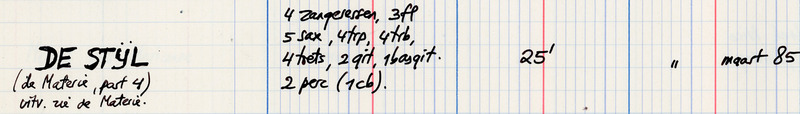 DE STÿL
(de Materie, part 4)
uitv. zie de Materie.
4 zangeressen, 3fl
5 sax, 4trp, 4trb,
4toets, 2git, 1basgit.
2 perc (1cb).
25'
"
maart 85